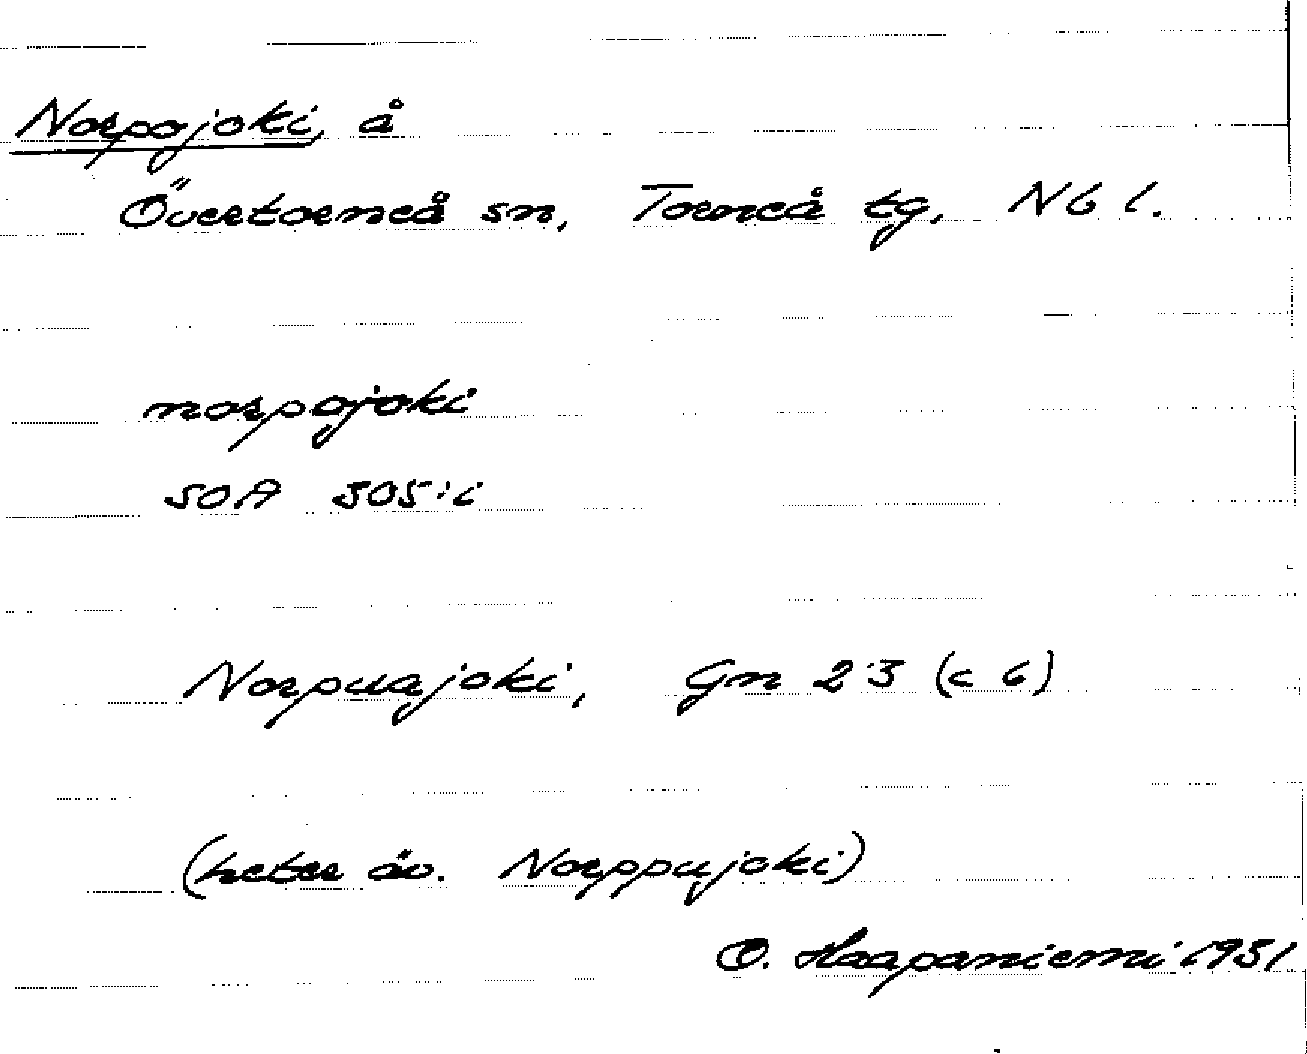 Norpojoki, å
Övertorneå sn, Torneå tg, Nb l.
norpojoki
SOA 305:i
Norpuajoki, Gn 23 (c 6)
(heter äv. Norppujoki)
O. Haapaniemi 1951